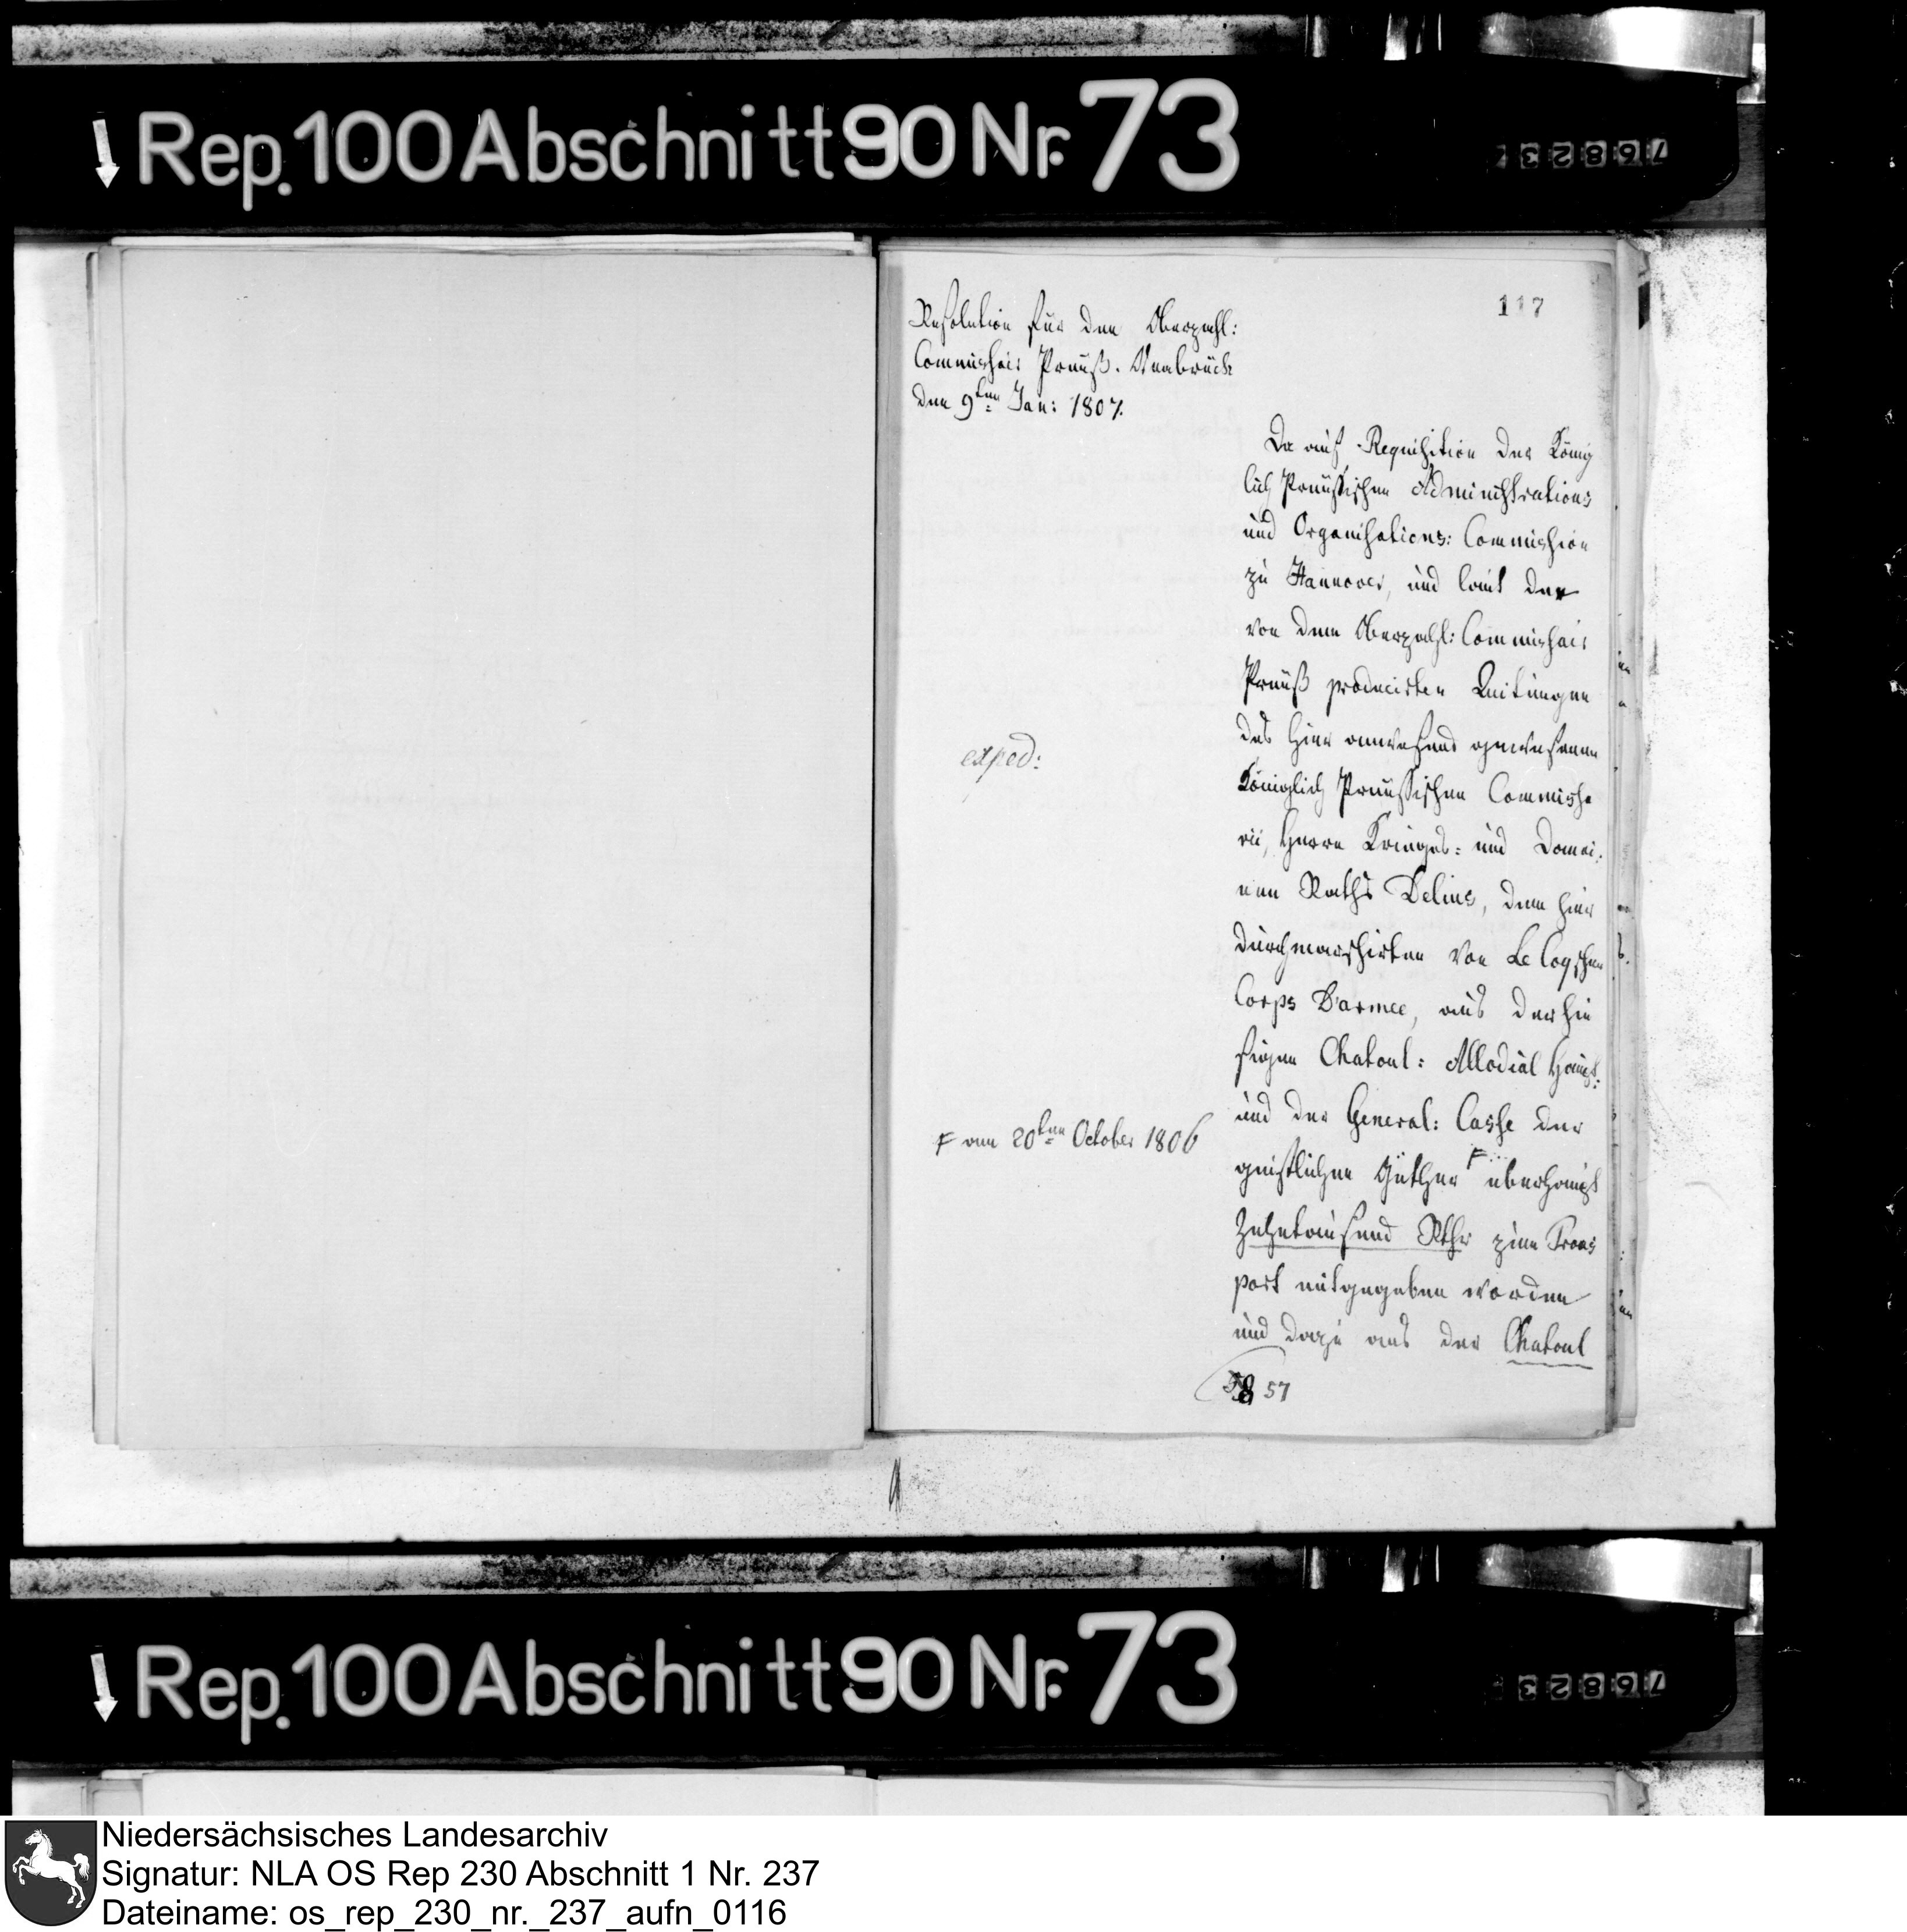 Rep. 100 Abschnitt 90 Nr. 73
117
Resolution für den Oberzahl:
Commissair Preuß. Osnabrück
den 9ten Jan: 1807.
Da auf Requisition der König
lich Preußischen Administrations
und Organisations: Commission
zu Hannover, und laut der
von dem Oberzahl: Commissair
Preuß producirten Quitungen
des hier anwesend gewesenen
Königlich Preußischen Commissa
rii, Herrn Krieges= und Domai,
nen Raths Delius, dem hier
durchmarschirten von Le Coqschen
Corps D'armee, aus der hie
sigen Chatoul: Allodial Haupt:
und der General: Casse der
geistlichen Güther F überhaupt
Zehntausend Rthr zum Trans
port mitgegeben worden
und dazu aus der Chatoul
57
exped:
F am 20ten October 1806
Rep. 100 Abschnitt 90 Nr. 73
Niedersächsisches Landesarchiv
Signatur: NLA OS Rep 230 Abschnitt 1 Nr. 237
Dateiname: os_rep_230_nr._237_aufn_0116